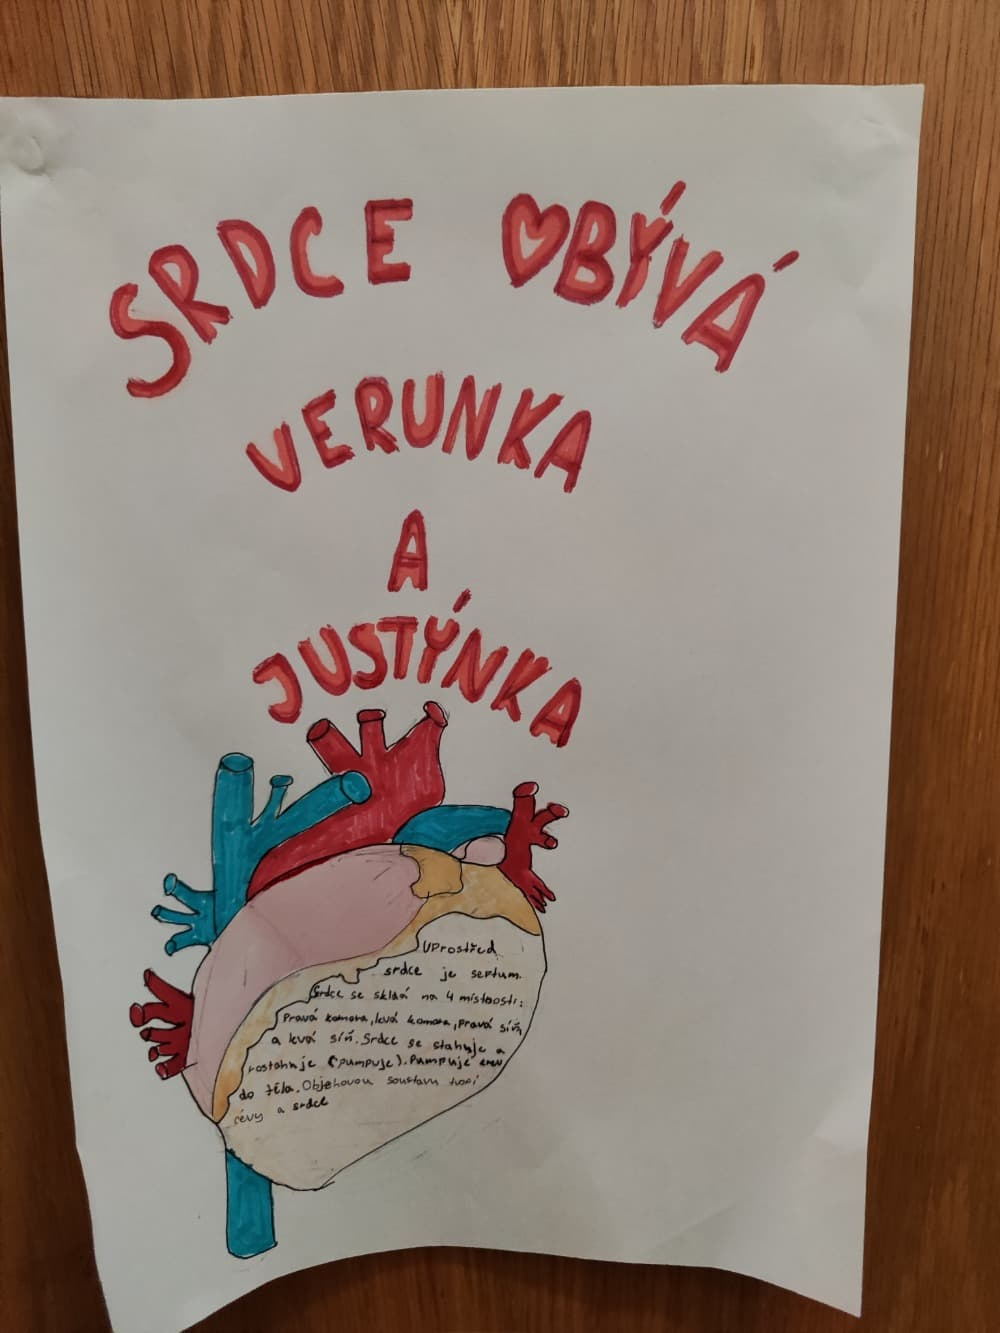 SRDCE OBÝVÁ
VERUNKA
A
JUSTÝNKA
Uprostřed
srdce je septum.
Srdce se skládá na 4 místnosti:
Pravá komora, levá komora, pravá síň,
a levá síň. Srdce se stahuje a
rostahuje (pumpuje). Pumpuje krev
do těla. Objehovou soustavu tvoří
cévy a srdce